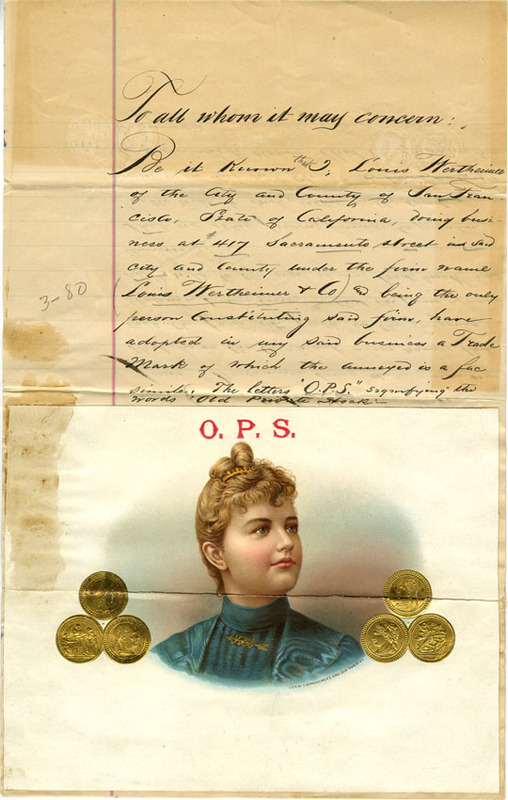 To all whom it may concern:
Be it Known that I, Louis Wertheimer
of the City and County of San Fran
cisco, State of California, doing busi
ness at #417 Sacramento street in said
city and County under the firm name
(Louis Wertheimer & Co) and being the only
person Constituting said firm, have
adopted in my said business a Trade
Mark of which the annexed is a fac
simile. The letters "O.P.S." signifying the
words Old Private Stock
3-80
O. P. S.